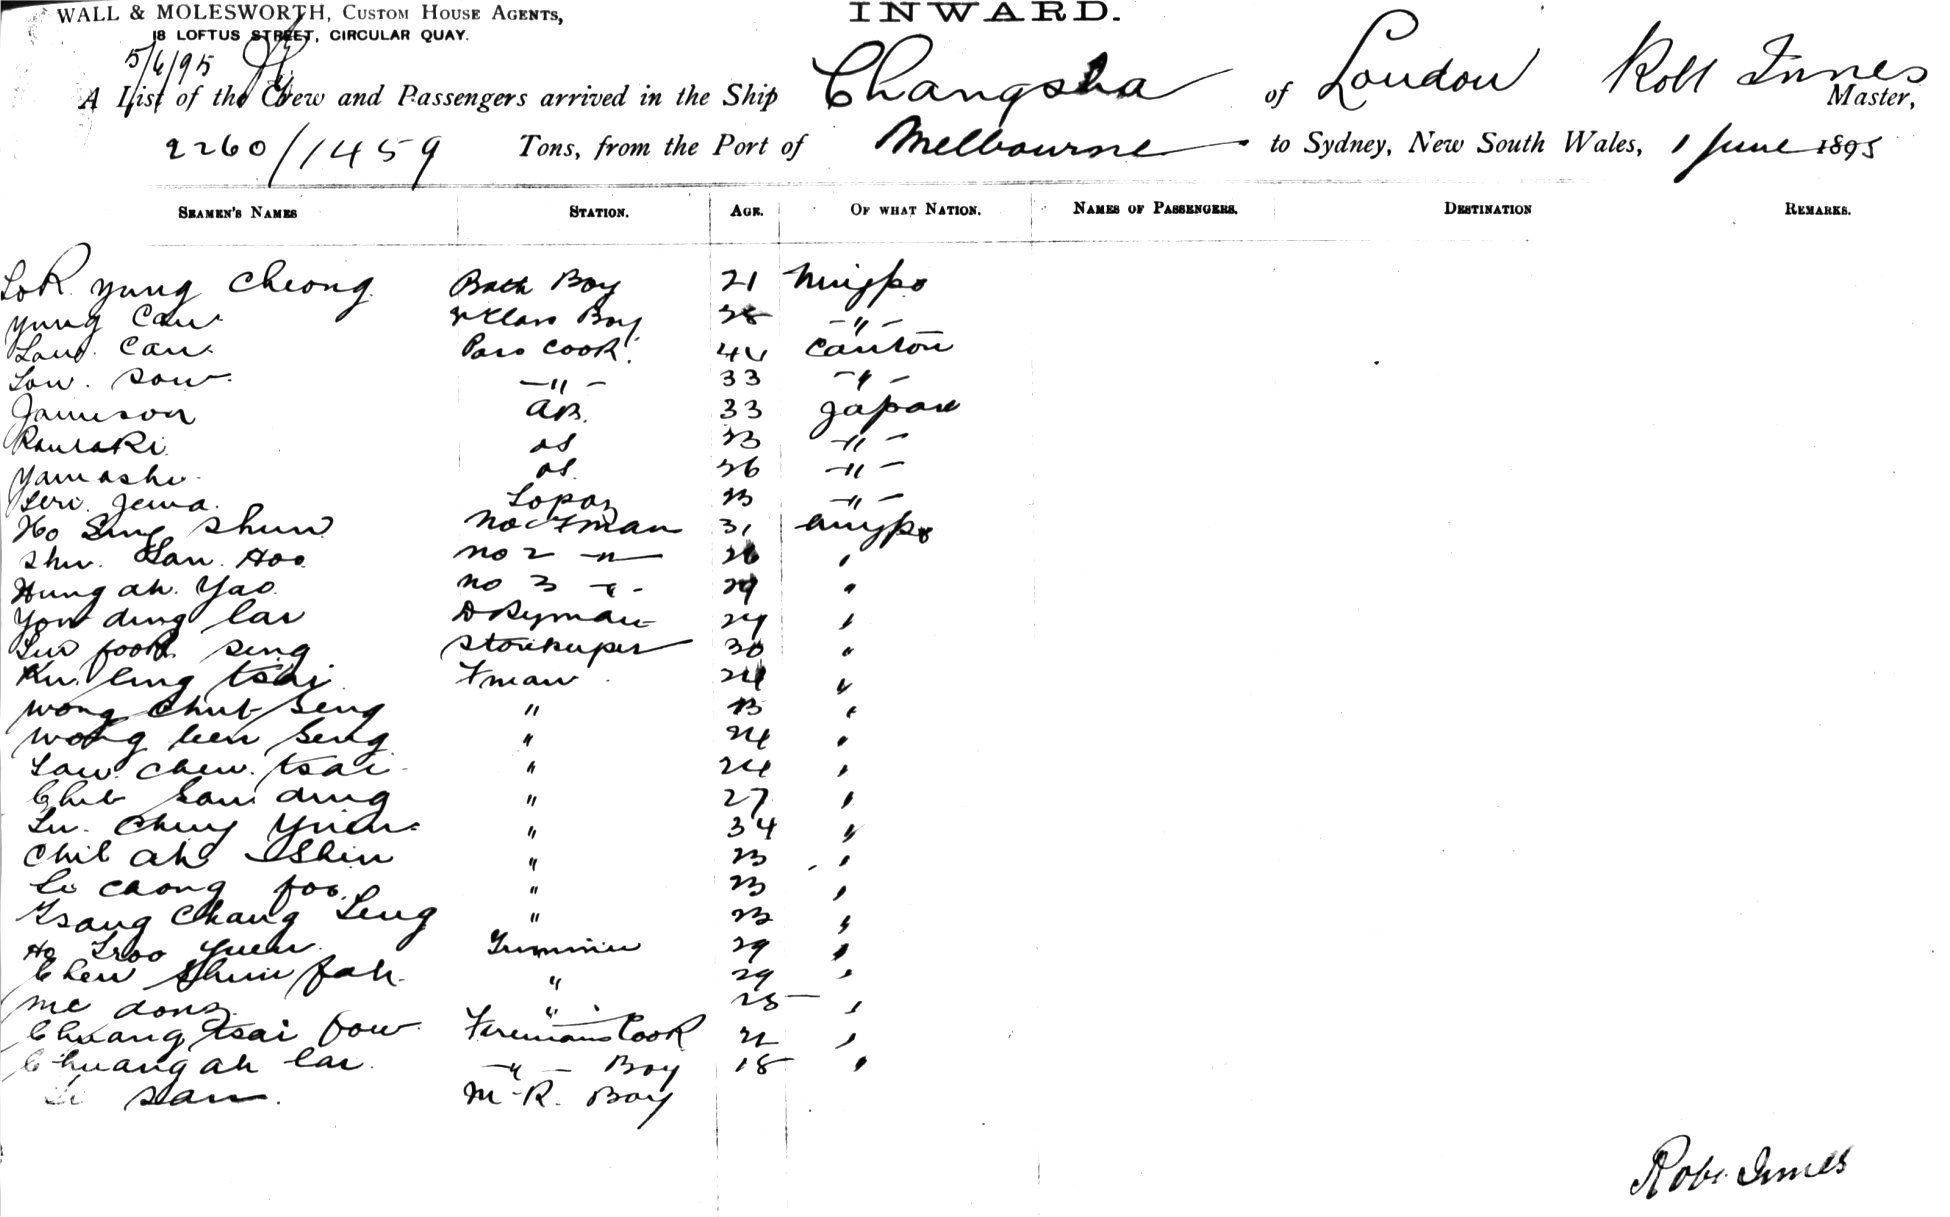 WALL & MOLESWORTH, CUSTOM HOUSE AGENTS,
18 LOFTUS STREET, CIRCULAR QUAY.
INWARD.
5/6/95
A List of the Crew and Passengers arrived in the Ship Changsha of London Robt Innes Master,
2260/1459 Tons, from the Port of Melbourne to Sydney, New South Wales, 1 June 1895
SEAMEN'S NAMES STATION. AGE. OF WHAT NATION. NAMES OF PASSENGERS. DESTINATION REMARKS.
Lok Yung Cheong Bath Boy 21 Ningpo
Yung Can Class Boy -"-
Can Pass Cook 44 Canton
Low Sow -"- 33 -"-
Jamieson AB. 33 Japan
os 23 -"-
Yamashi os 26 -"-
-"-
Ho Sing Shun No 1 Fman 31 Ningpo
Shu Hoo No 2 -"- "
Hung ah Yao No 3 -"- 29 "
You ding lai Dkyman 29 "
fook seng Storekeeper 30 "
Ku ling tsai Fman 24 "
Wong Seng " 23 "
Wong Seng " 24 "
Law chew tsai " 24 "
San ding " 27 "
Lu Yuen " 34 "
Chit ah Shin " 23 "
Le Chong foo " 23 "
Tsang Chang Leng " 23 "
Ho Yuen Trimmer 29 "
Chew Shun fah " 29 "
me dong " 25 "
Chuang tsai fow Firemans Cook 22 "
Chuang ah lai -"- Boy 18 "
San M-R. Boy
Robt Innes